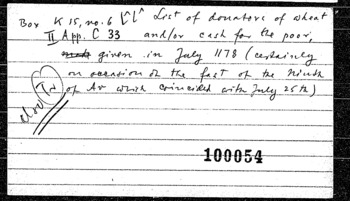 Box K 15, no. 6 List of donators of wheat
II App. C 33 and/or cash for the poor,
given in July 1178 (certainly
on occasion of the fast of the Ninth
of Av which coincided with July 25th)
also Tr
100054